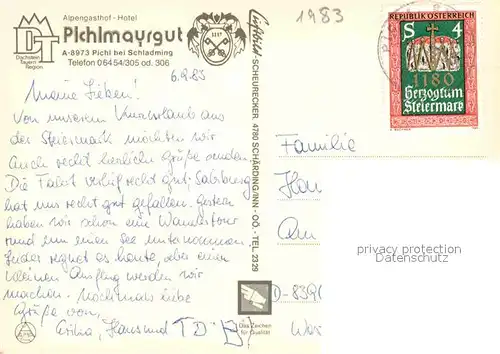 Alpengasthof - Hotel
Pichlmayrgut
A-8973 Pichl bei Schladming
Telefon 06454/305 od. 306
DT
Dachstein
Tauern
Region
1117
6.9.83
Meine Lieben!
Von unserem Kurzurlaub aus
der Steiermark möchten wir
Euch recht herzliche Grüße senden.
Die Fahrt verlief recht gut; Salzburg
hat uns recht gut gefallen. Gestern
haben wir schon eine Wandertour
rund um einen See unternommen.
Leider regnet es heute, aber einen
kleinen Ausflug werden wir
machen. Nochmals liebe
Grüße von
Erika, Hans und
Luftbild-SCHEURECKER, 4780 SCHÄRDING/INN - OÖ. - TEL. 2329
Das Zeichen
für Qualität
1983
REPUBLIK ÖSTERREICH
S 4
1180
Herzogtum
Steiermark
Familie
Am
D-839
privacy protection
for Collectors